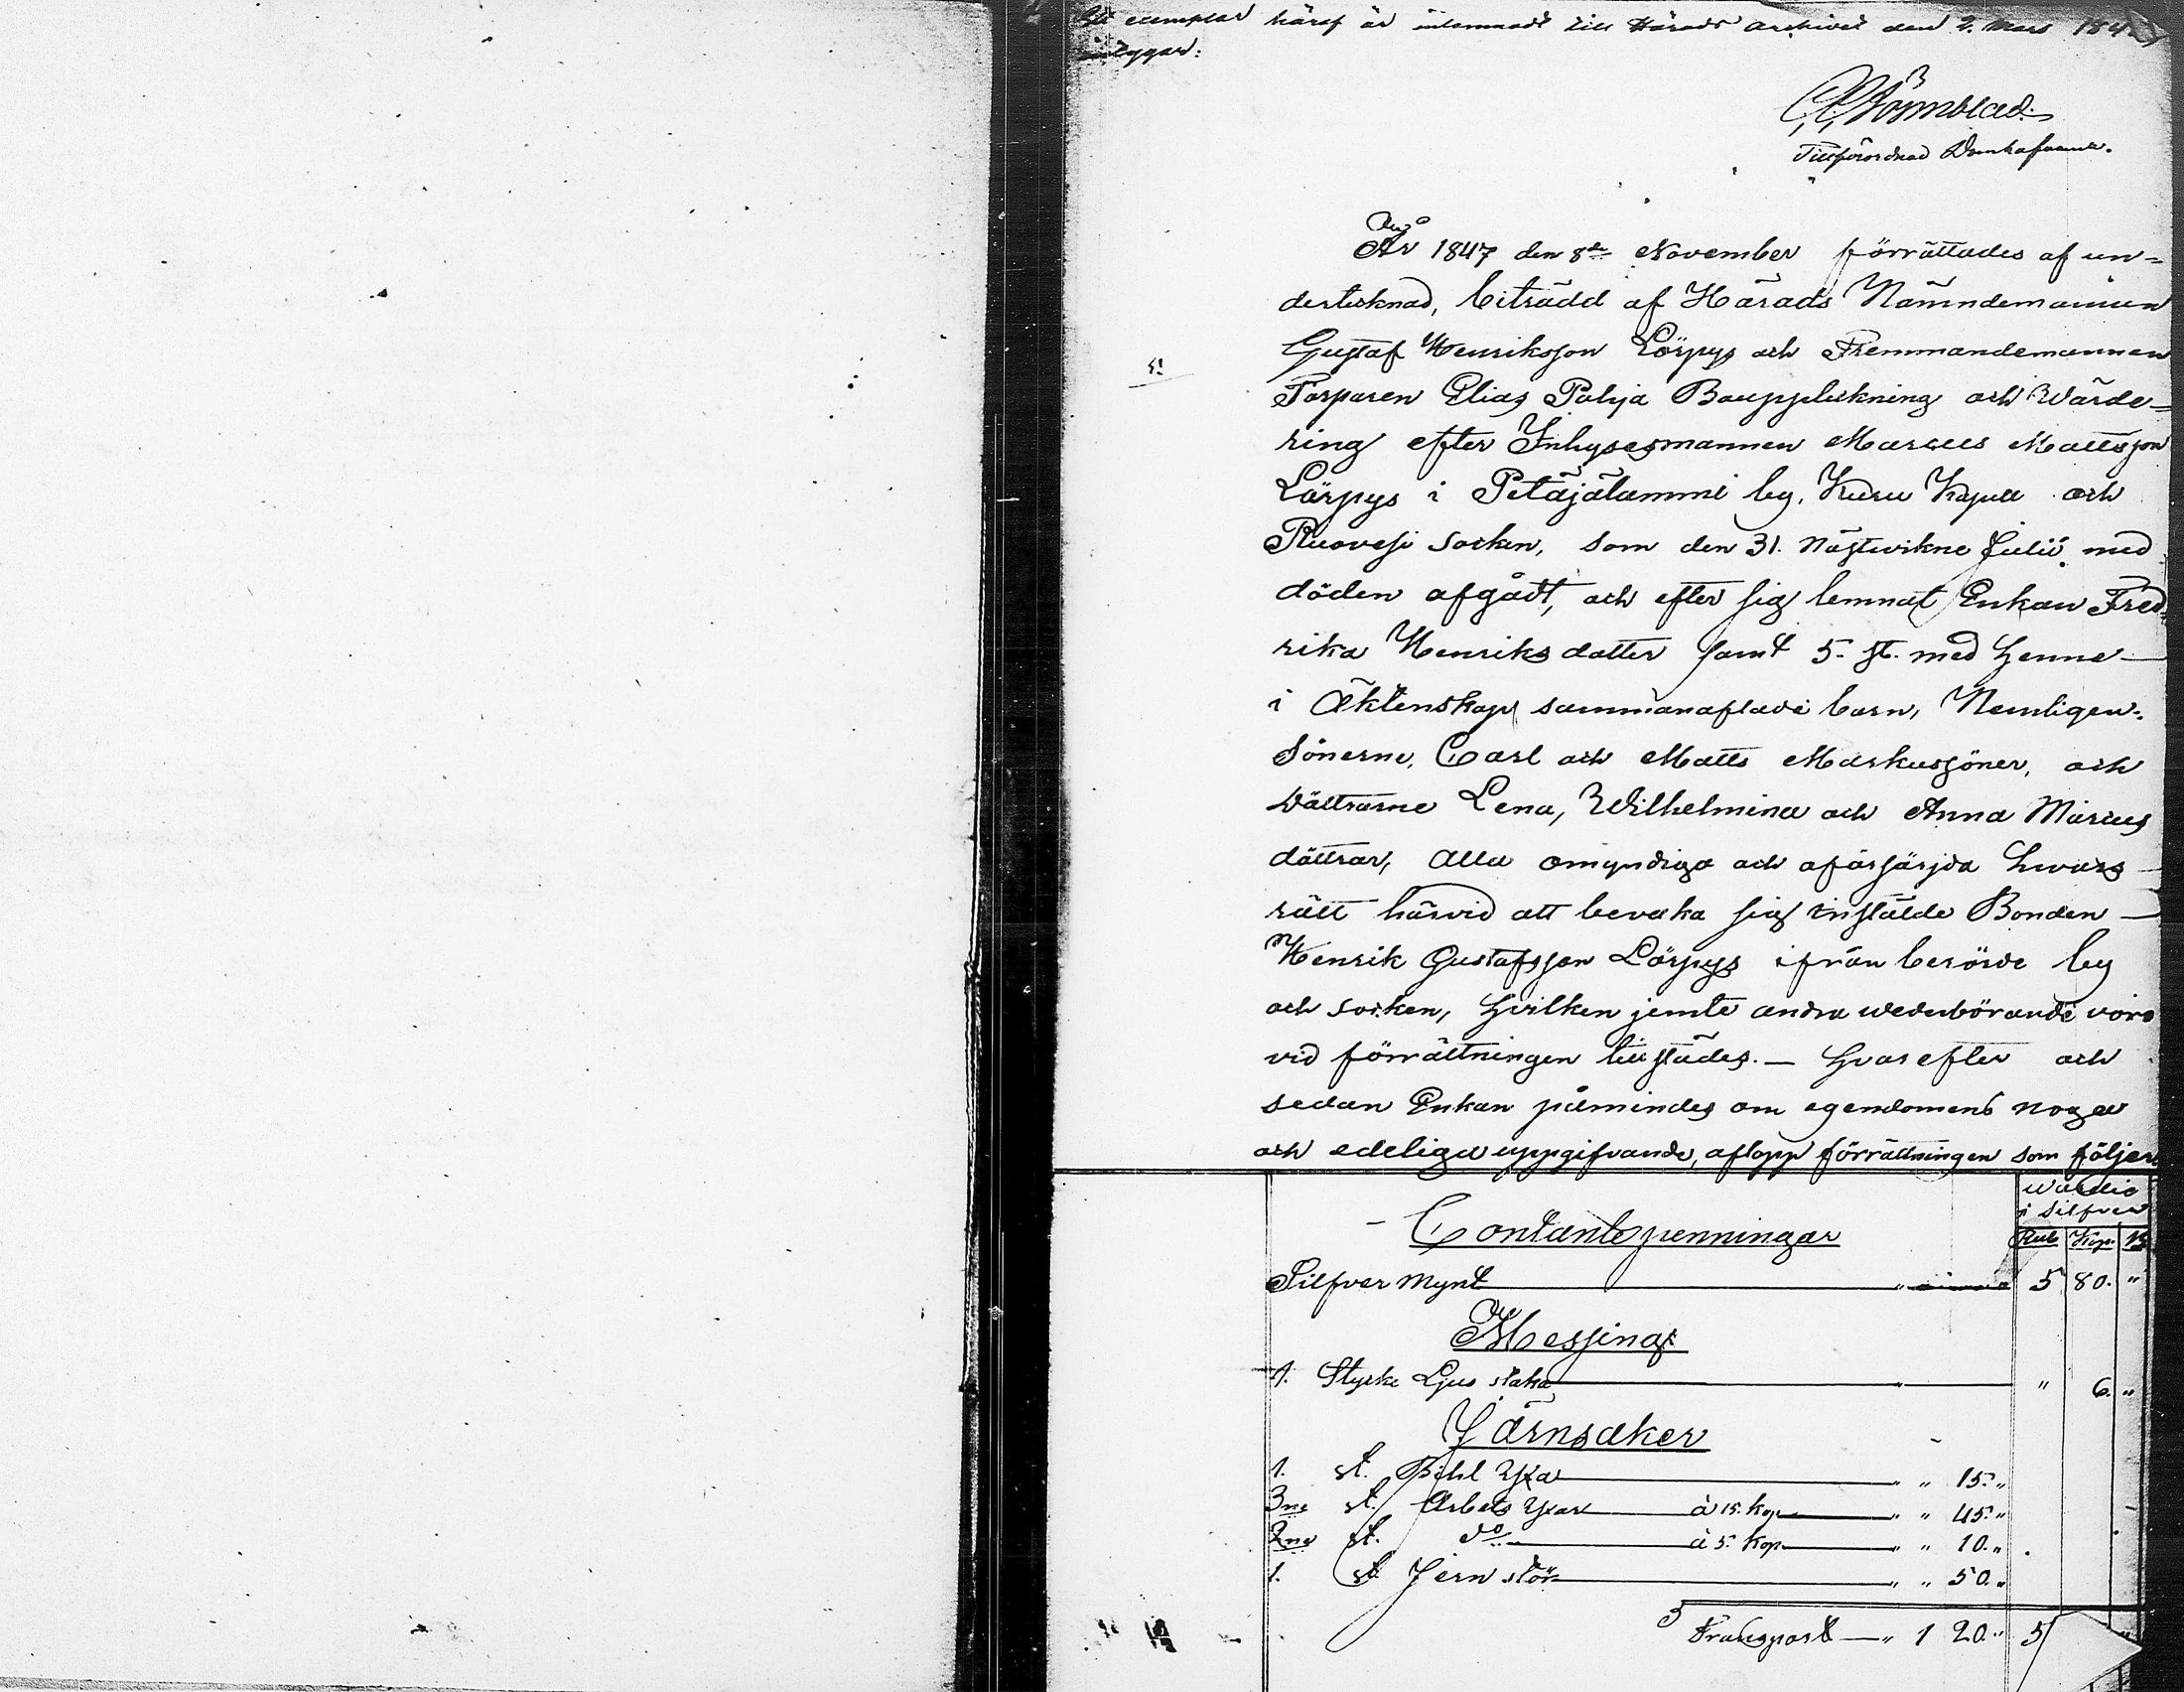 Ett exemplar häraf är inlemnadt till Härads Archivet den 2. Mars 184
intygar:
Tillförordnad Domhafvande.
År 1847 den 8de November förrättades af un=
dertecknad, biträdd af Härads Nämndemannen
Gustaf Henriksson Lörpys och Fremmandemannen
Torparen Elias Pohja Bouppteckning och Wärde=
ring efter Inhysesmannen Marcus Mattsson
Lörpys i Petäjälammi by, Kuru Kapell och
Ruovesi Socken, som den 31. nästvikne Julii med
döden afgått, och efter sig lemnat Enkan Fred=
rika Henriksdotter samt 5. st. med henne
i Äktenskap sammanaflade barn, Nemligen:
Sönerne, Carl och Matts Markussöner, och
Döttrarne Lena, Wilhelmina och Anna Marcus
döttrar, alla omyndiga och oförsörjda hvars
rätt härvid att bevaka sig instälde Bonden
Henrik Gustafsson Lörpys ifrån berörde by
och socken, hvilken jemte andra wederbörande voro
vid förrättningen tillstädes. — Hvarefter och
sedan Enkan påmindes om egendomens noga
och edeliga uppgifvande, aflopp förrättningen som följer
Wärdie
i Silfver
Rub Kop.
Contante penningar
Silfver Mynt " 5 80. "
Messing
1. Stycke Ljus staka " " 6. "
Järnsaker
1. st. Bihl Yxa " " 15. "
3ne st. Arbets Yxar à 15. kop " " 45. "
2ne st. do à 5. kop " " 10. "
1. st Jern stör " " 50. "
Transport — " 1 20. " 5